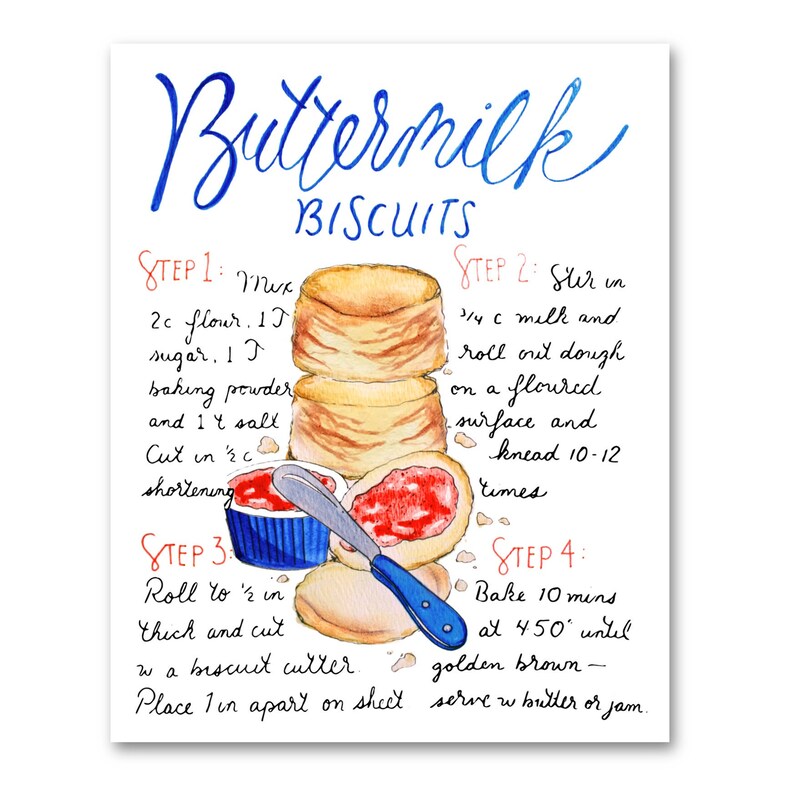 Buttermilk
BISCUITS
STEP 1: Mix
2c flour, 1 T
sugar, 1 T
baking powder
and 1 t salt
Cut in ½ c
shortening
STEP 2: Stir in
¾ c milk and
roll out dough
on a floured
surface and
knead 10-12
times
STEP 3:
Roll to ½ in
thick and cut
w a biscuit cutter.
Place 1 in apart on sheet
STEP 4:
Bake 10 mins
at 450° until
golden brown—
serve w butter or jam.